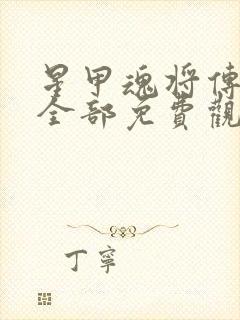 星甲魂将傳
全部免費觀
丁寧